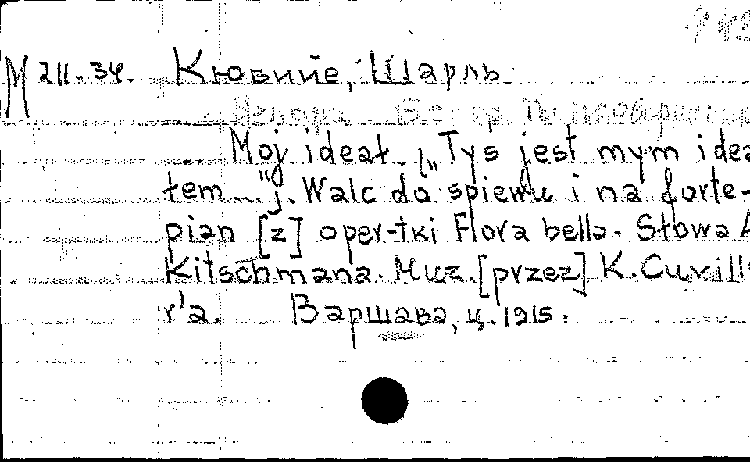 М 211.-34. Кювийе, Шарль
Moj ideał. („Tys jest mym idea
łem..."). Walc do spiewu i na forte-
pian [z] oper-tki Flora bella. Słowa A
Kitschmana. Muz. [przez] K. Cuvill
r'a. Варшава, ц. 1915.